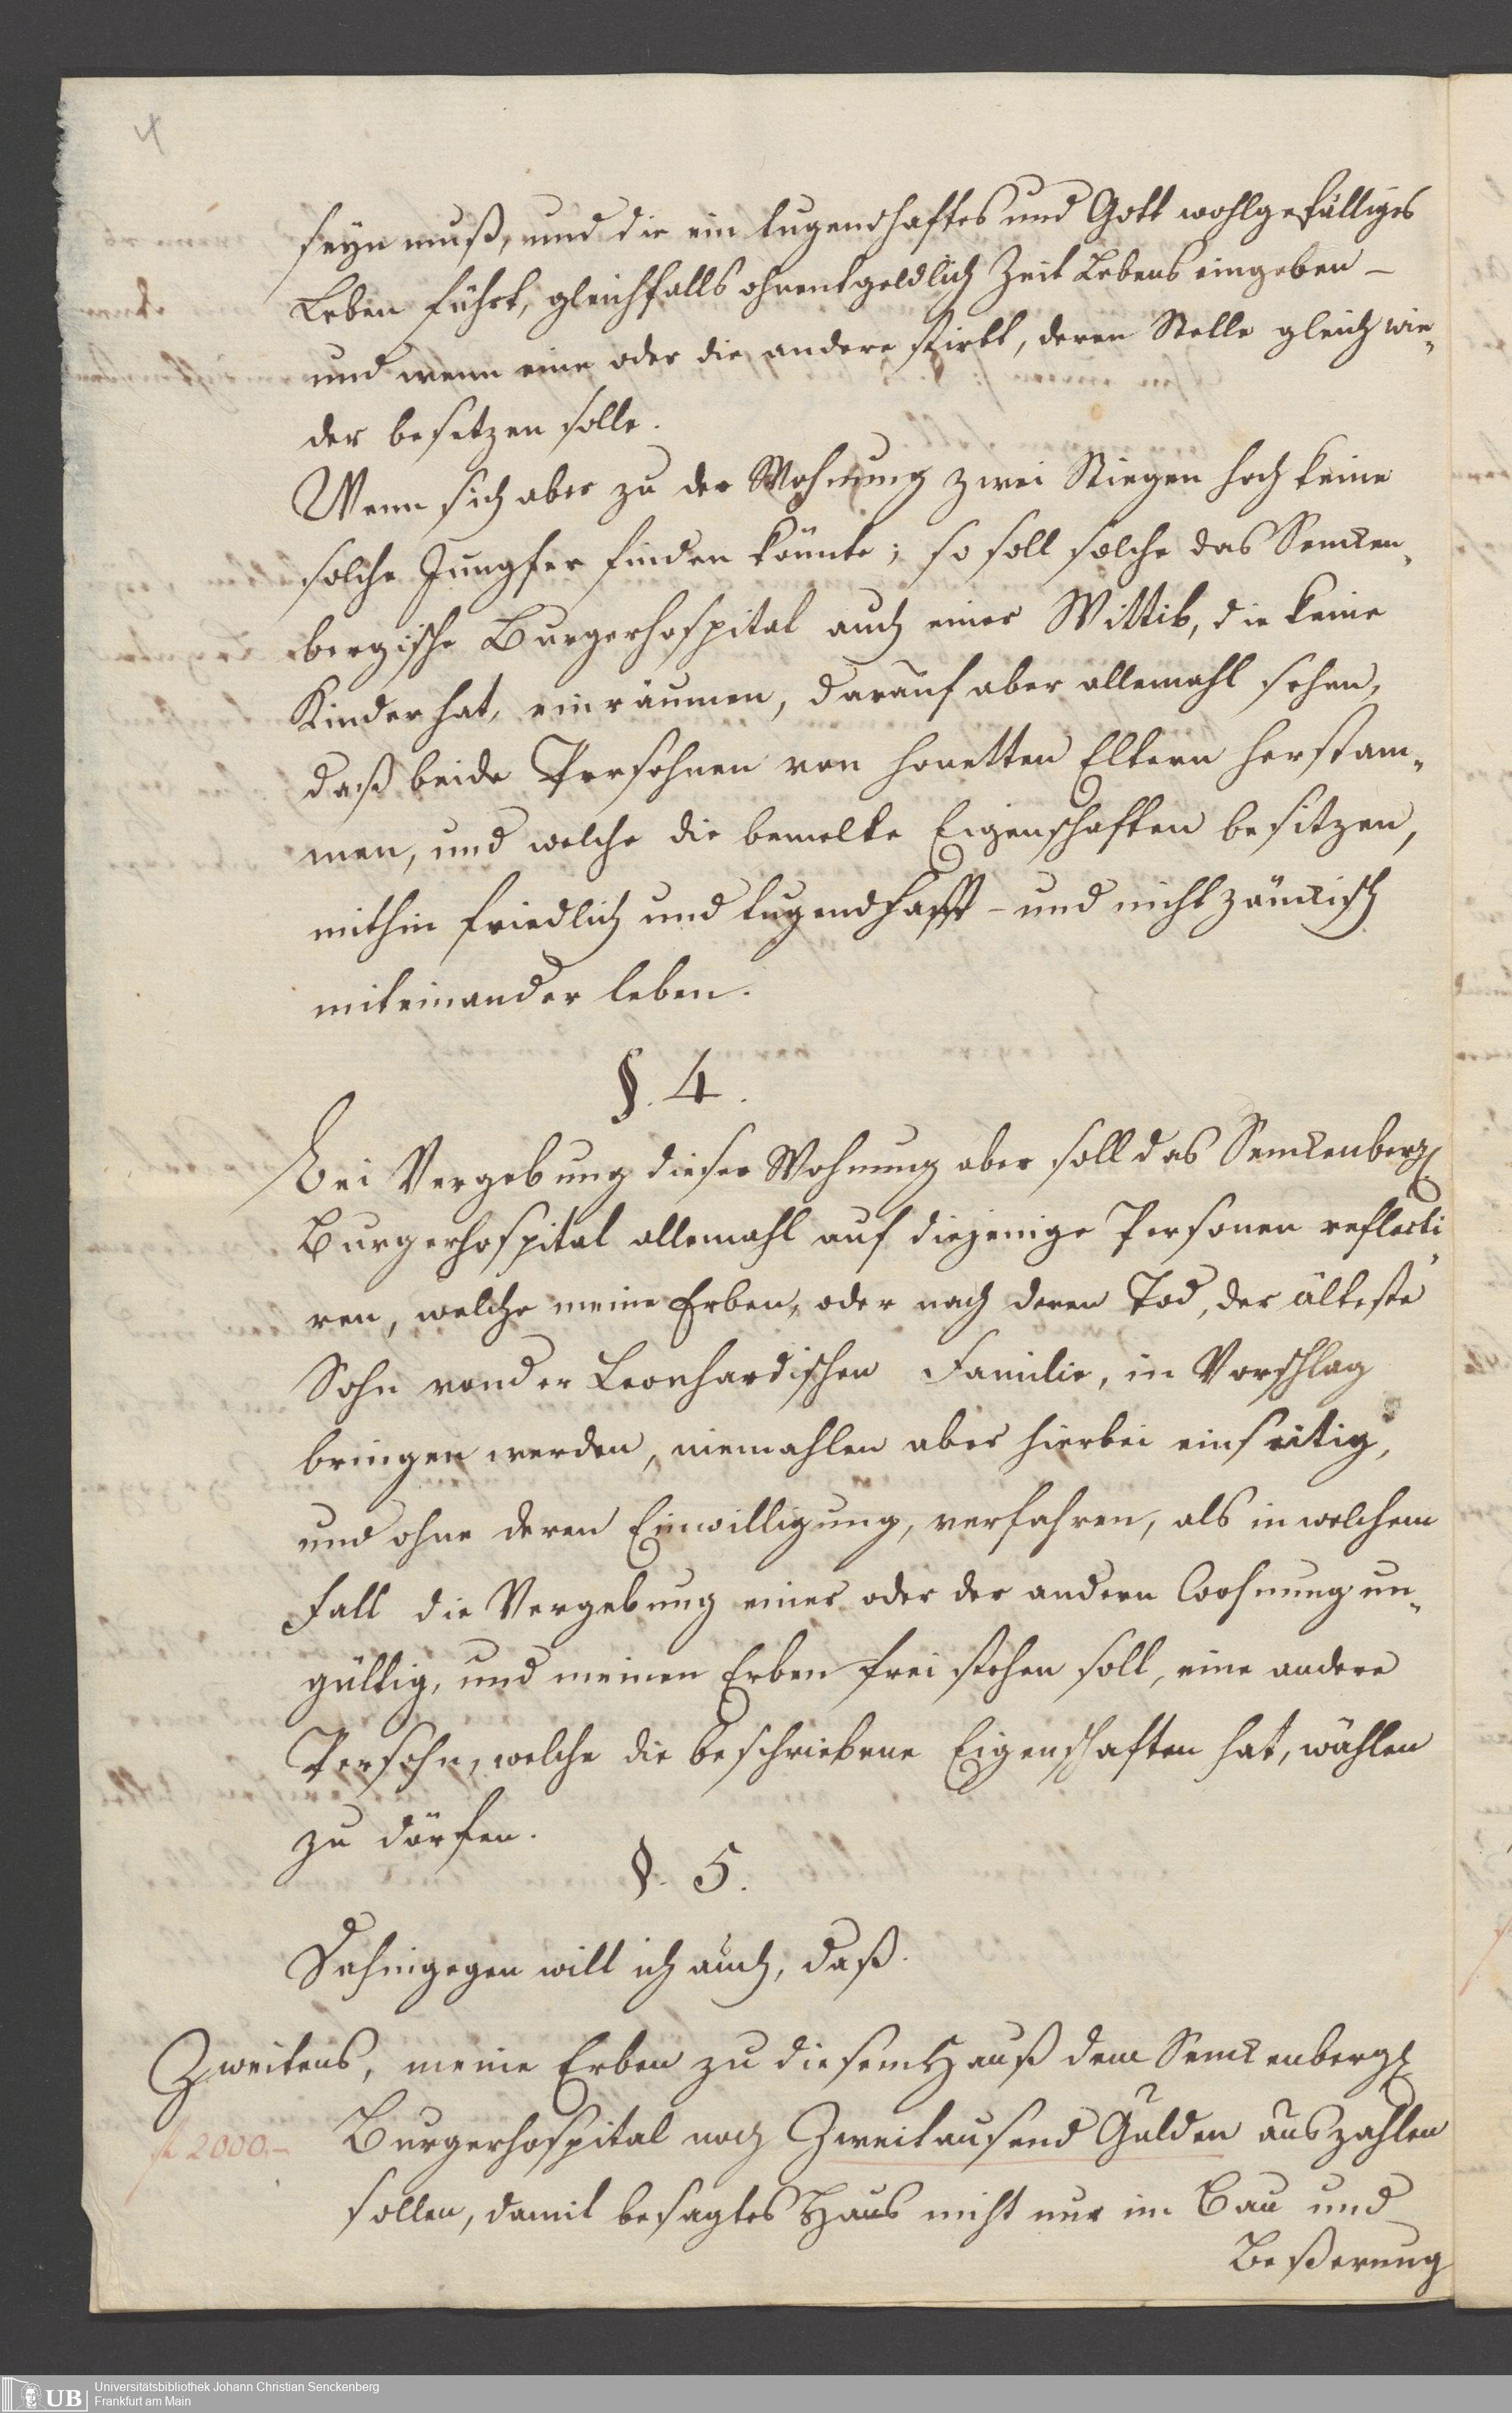 4
seyn muß, und die ein tugendhaftes und Gott wohlgefälliges
Leben führt, gleichfalls ohnentgeldlich Zeit Lebens eingeben –
und wenn eine oder die andere stirbt, deren Stelle gleich wie„
der besetzen solle.
Wenn sich aber zu der Wohnung zwei Stiegen hoch keine
solche Jungfer finden könnte; so soll solche das Sencken„
bergische Burgerhospital auch einer Wittib, die keine
Kinder hat, einräumen, darauf aber allemahl sehen,
daß beide Persohnen von honetten Eltern herstam„
men, und welche die bemelte Eigenschaften besitzen,
mithin friedlich und tugendhafft – und nicht zänckisch
miteinander leben.
§. 4.
Bei Vergebung dieser Wohnung aber soll das Senckenberg.
Burgerhospital allemahl auf diejenige Personen reflecti„
ren, welche meine Erben, oder nach deren Tod, der älteste
Sohn von der Leonhardischen Familie, in Vorschlag
bringen werden, niemahlen aber hierbei einseitig,
und ohne deren Einwilligung, verfahren, als in welchem
Fall die Vergebung einer oder der andern Wohnung un„
gültig, und meinen Erben frei stehen soll, eine andere
Persohn, welche die beschriebene Eigenschaften hat, wählen
zu dörfen.
§. 5.
Dahingegen will ich auch, daß.
Zweitens, meine Erben zu diesem Hauß dem Senckenberg.
f 2000.– Burgerhospital noch Zweitausend Gulden auszahlen
sollen, damit besagtes Haus nicht nur in Bau und
Beßerung
UB Universitätsbibliothek Johann Christian Senckenberg
Frankfurt am Main